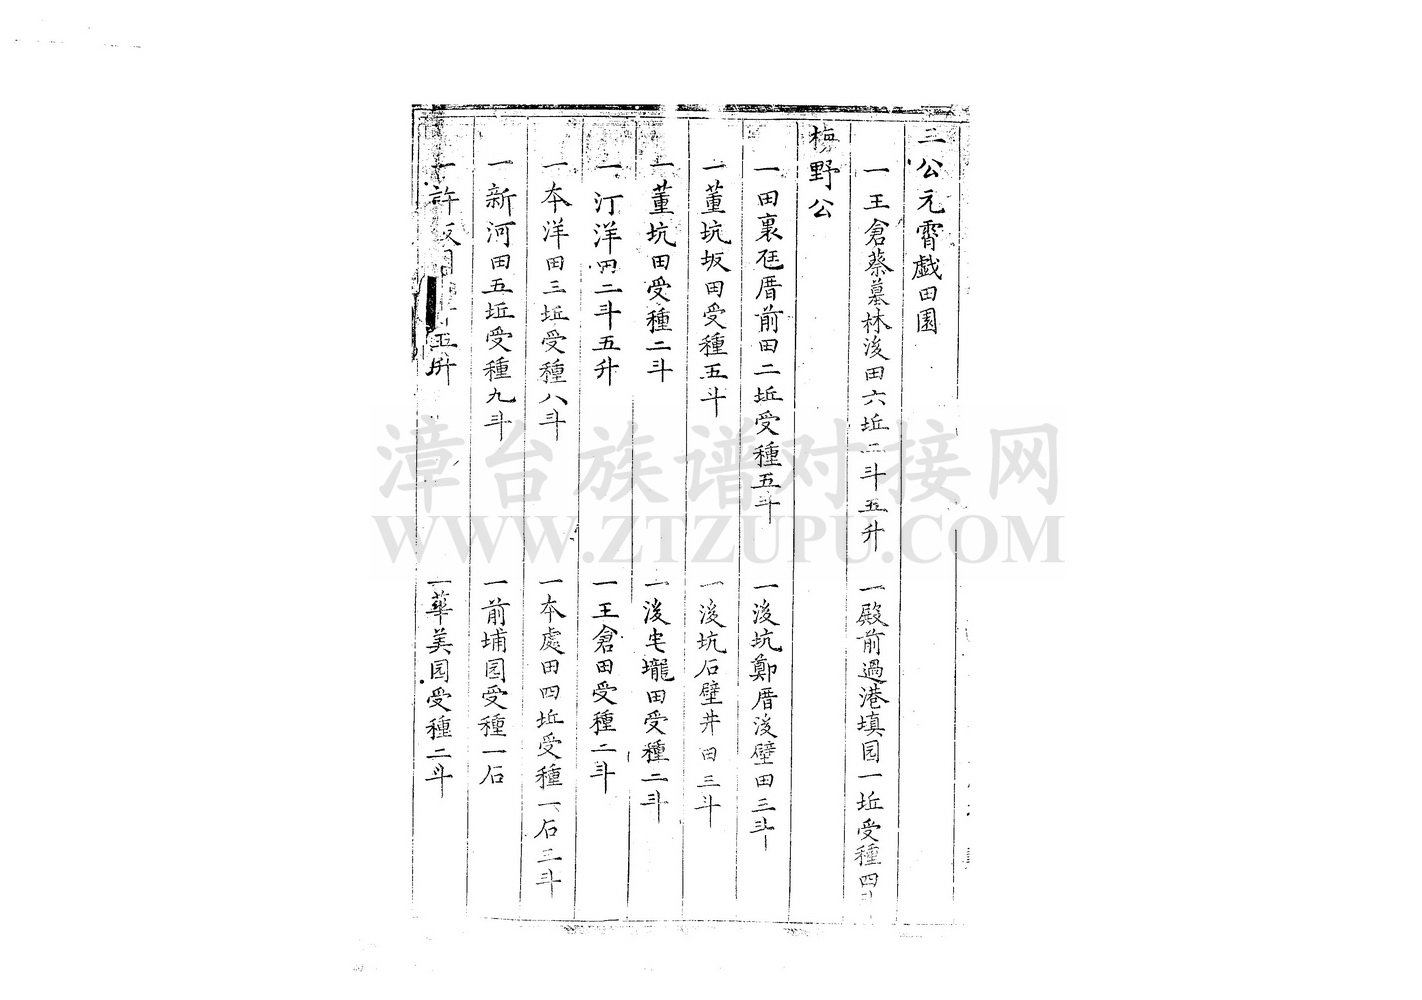 三公元霄戲田園
一王倉蔡墓林後田六坵二斗五升 一殿前過港填园一坵受種四斗
梅野公
一田裏厝前田二坵受種五斗 一後坑鄭厝後壁田三斗
一董坑坂田受種五斗 一後坑石壁井田三斗
一董坑田受種二斗 一後宅壠田受種二斗
一汀洋田二斗五升 一王倉田受種二斗
一本洋田三坵受種八斗 一本處田四坵受種一石二斗
一新河田五坵受種九斗 一前埔园受種一石
一許 五升 一華美园受種二斗
漳台族谱对接网
WWW.ZTZUPU.COM